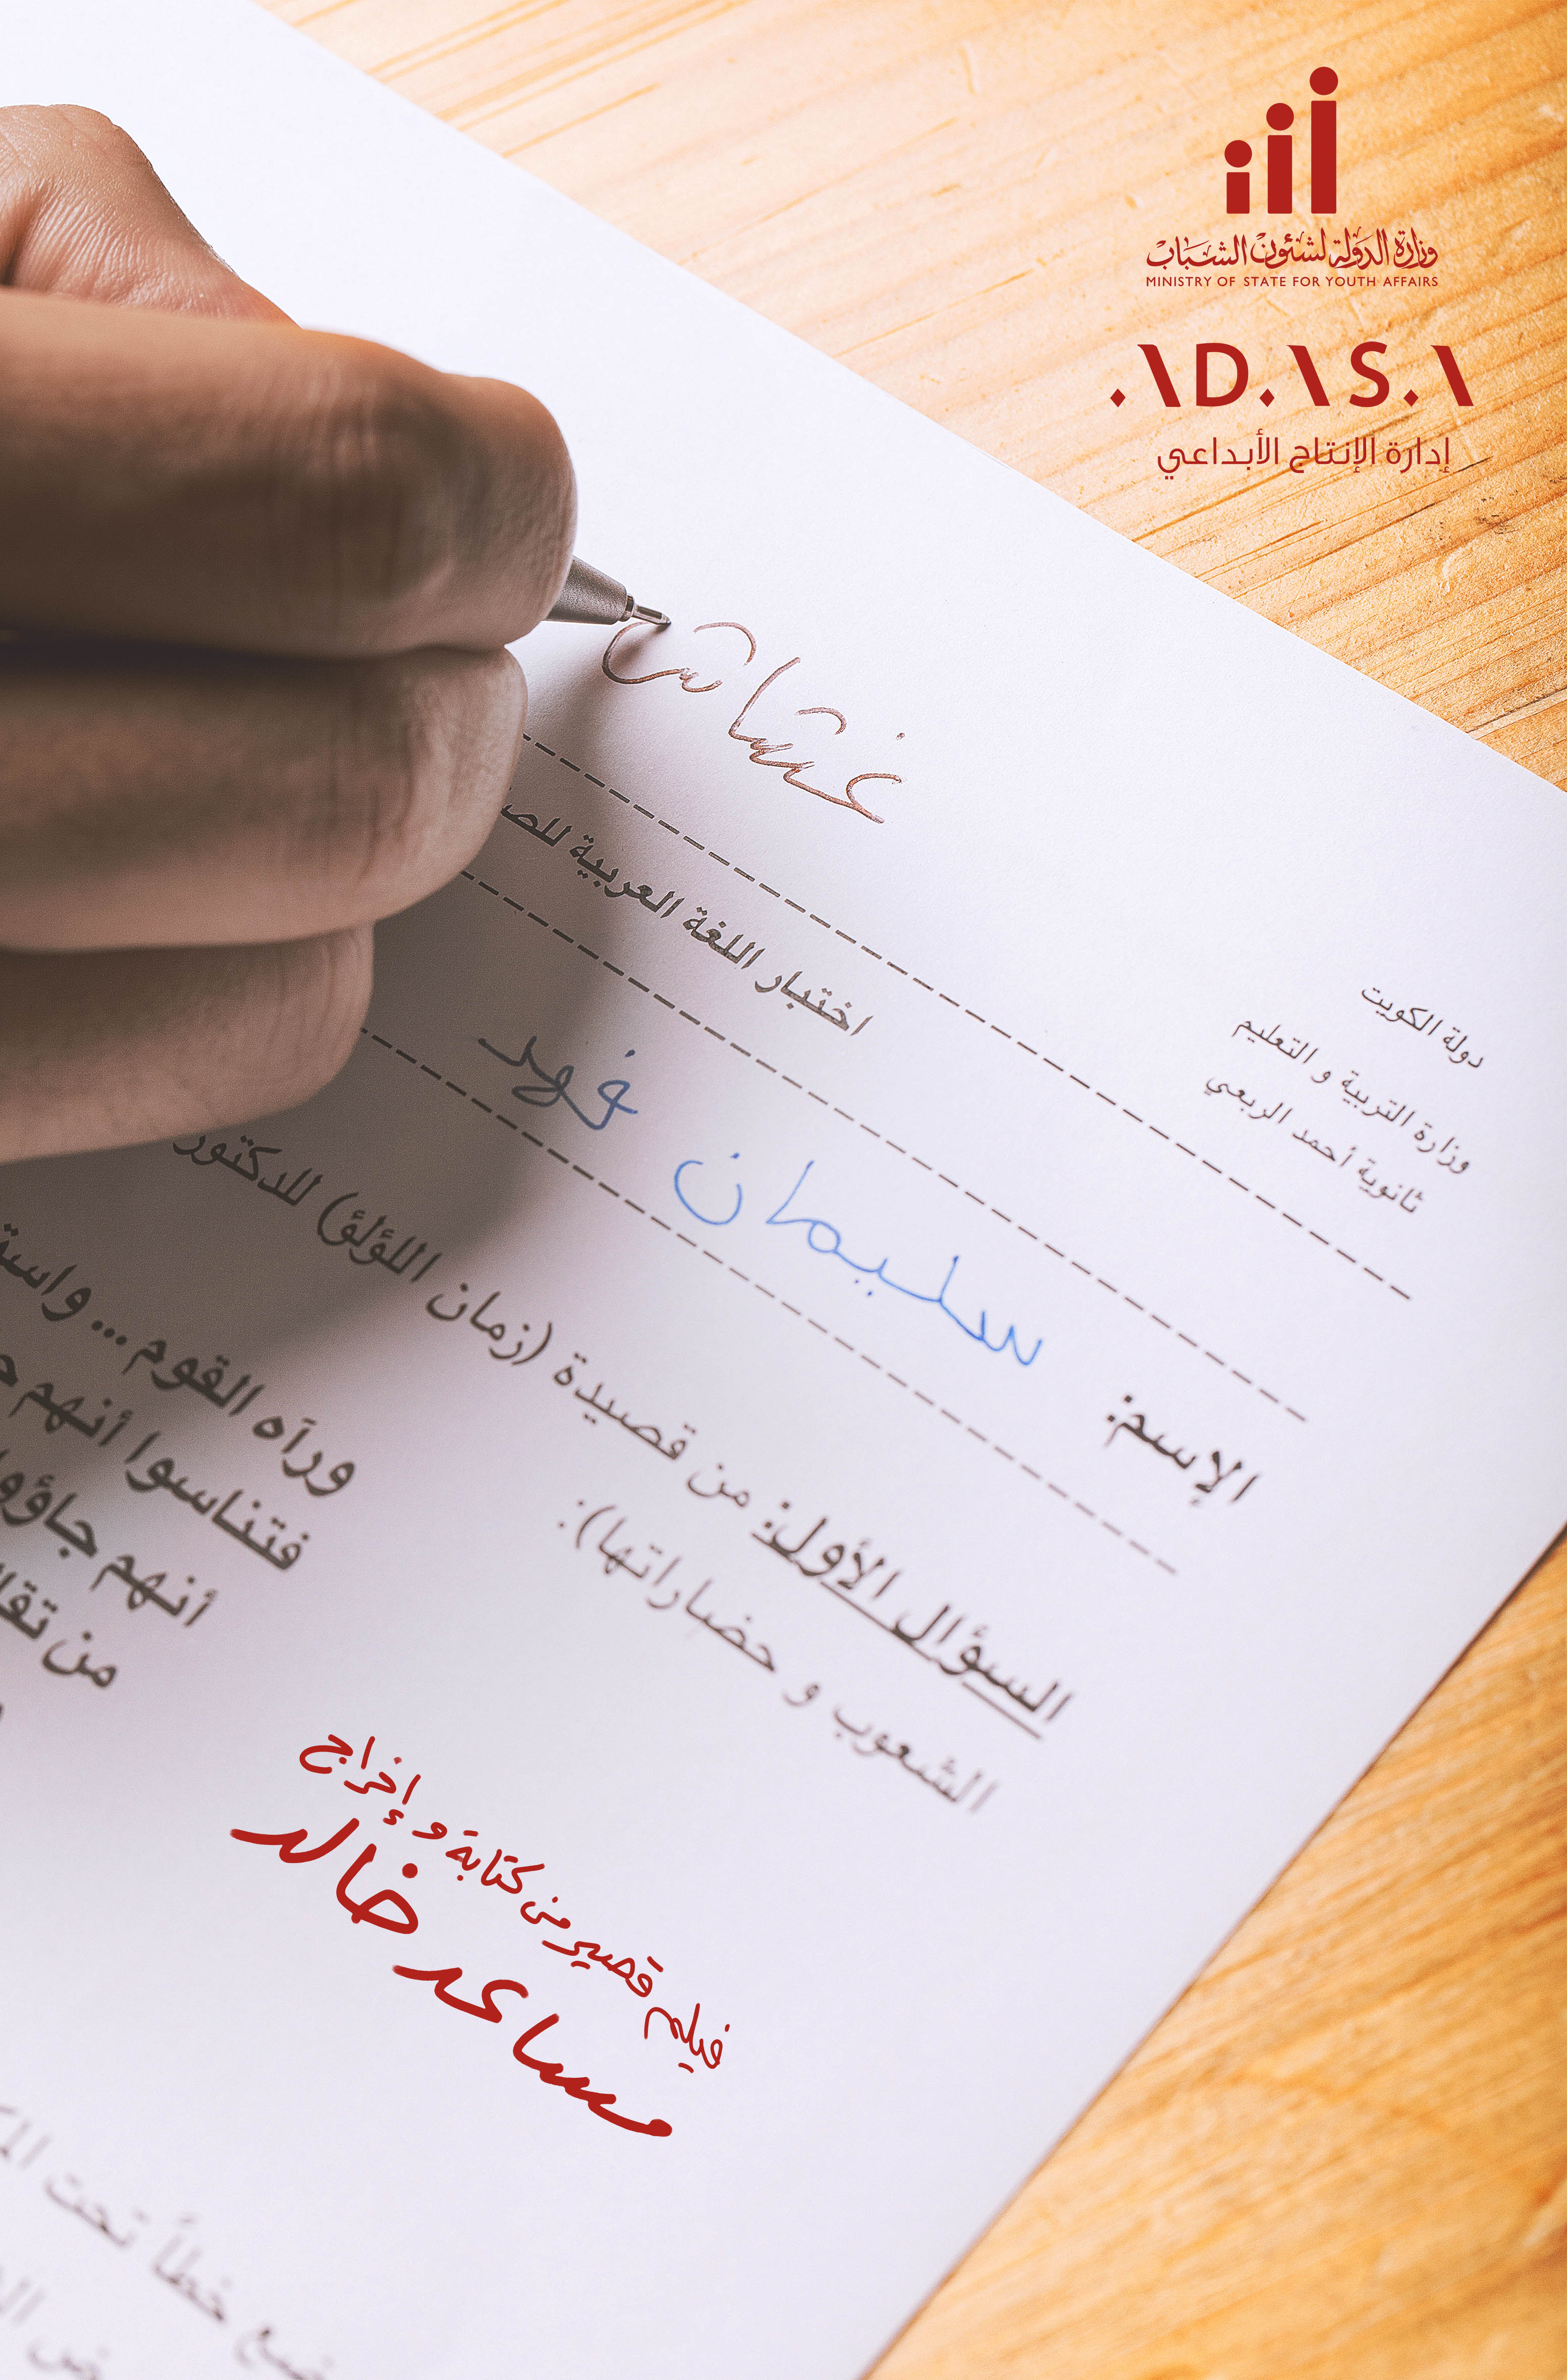 وزارة الدولة لشئون الشباب
MINISTRY OF STATE FOR YOUTH AFFAIRS
ADASA
إدارة الإنتاج الأبداعي
غشاش
دولة الكويت
وزارة التربية و التعليم
ثانوية أحمد الربعي
اختبار اللغة العربية
الإسم: سليمان فهد
السؤال الأول: من قصيدة (زمان اللؤلؤ) للدكتور
الشعوب و حضاراتها):
ورآه القوم ...
فتناسوا أنهم
أنهم جاؤوا
من
فيلم قصير من كتابة و إخراج
مساعد خالد
خطاً تحت